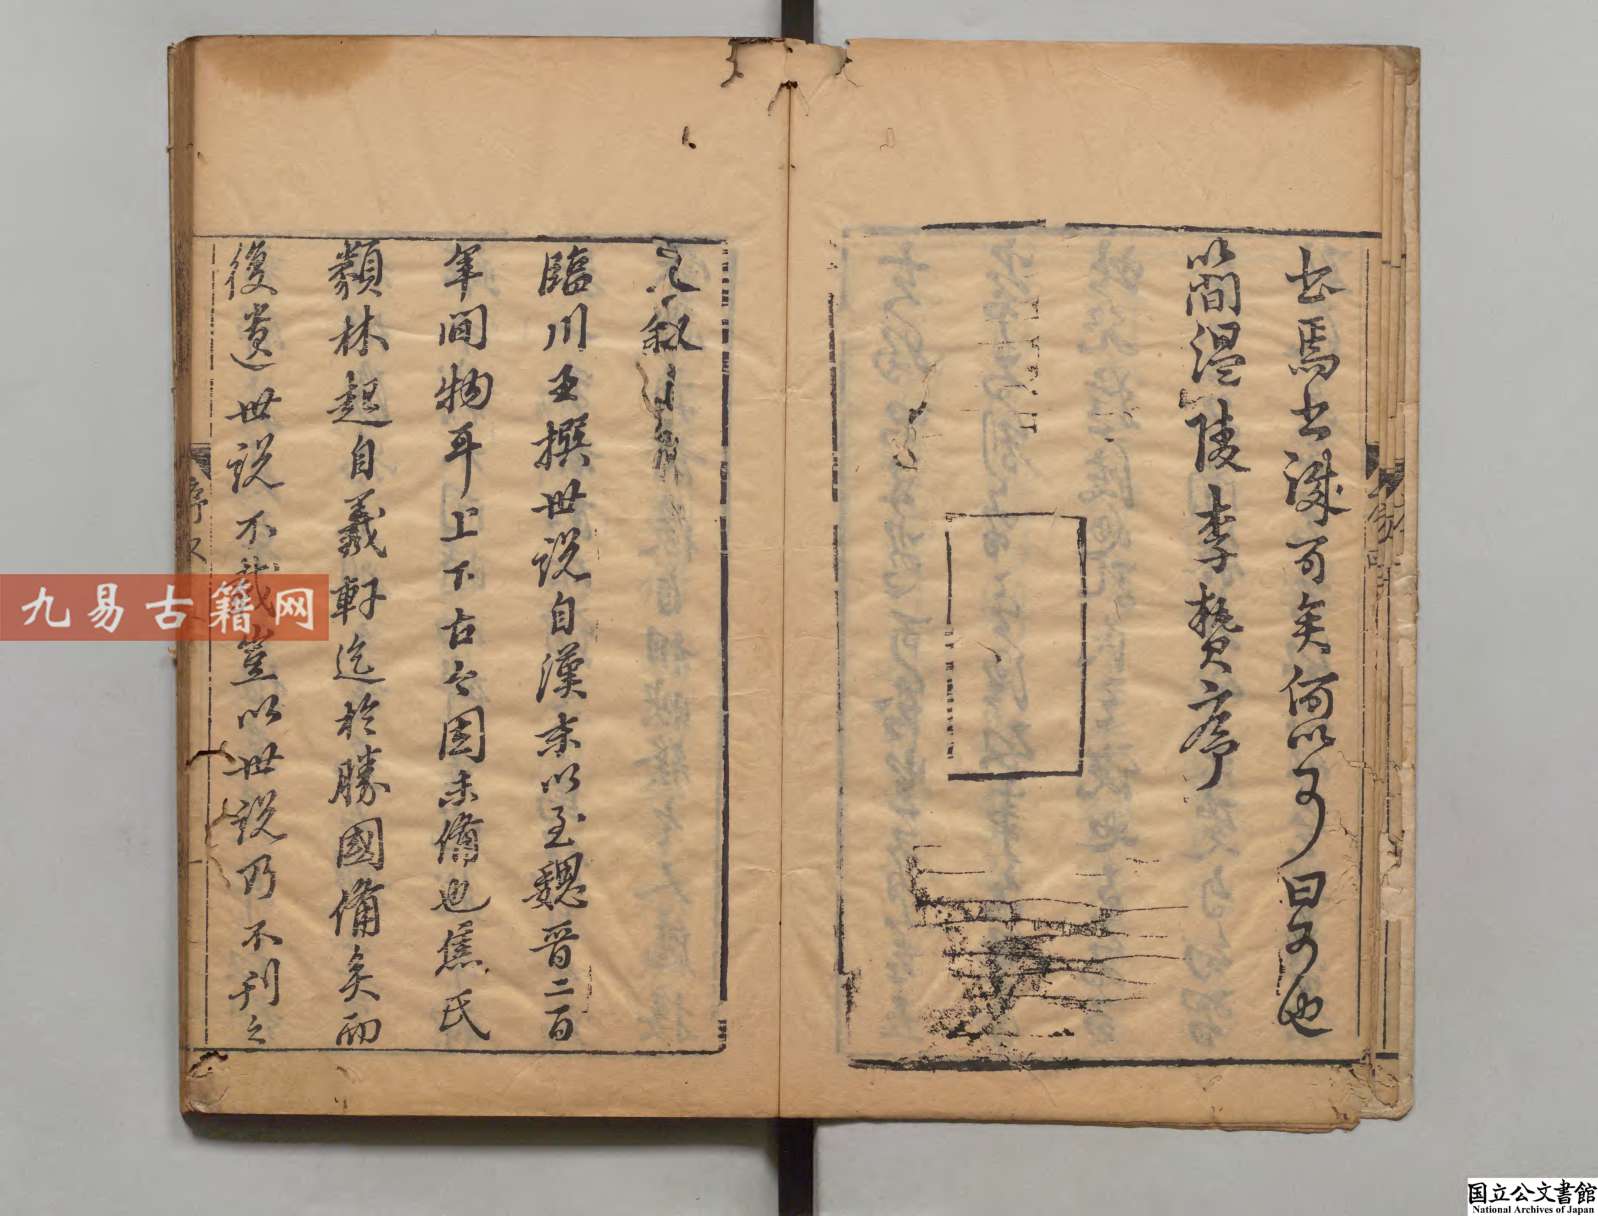 出焉出誅可矣何以又曰支也
簡溫陵李贄序
又叙
臨川王撰世説自漢末以至魏晉二百
年間物耳上下古今固未備也焦氏
類林起自羲軒迄於勝國備矣而
復遺世説不載豈以世説乃不刊之
序又
九易古籍网
国立公文書館
National Archives of Japan